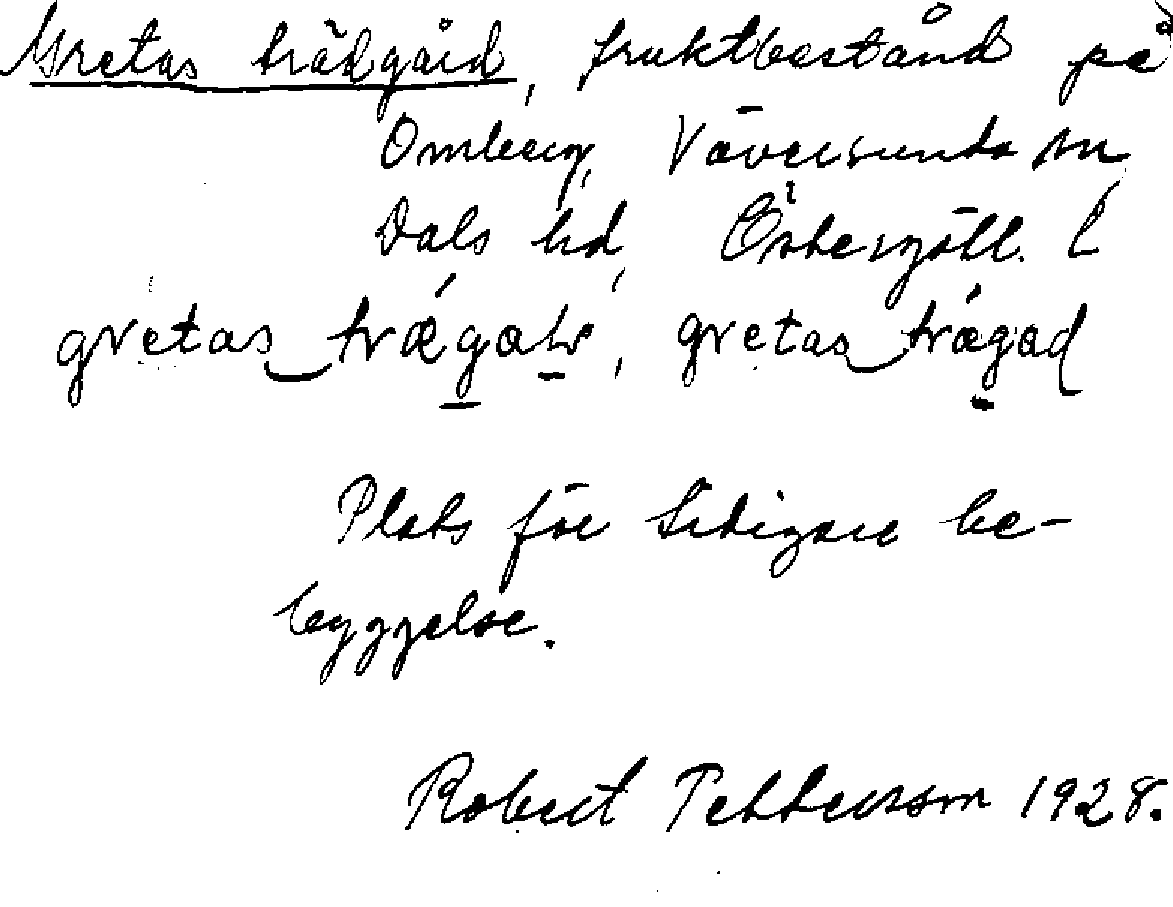 Gretas trädgård, fruktbestånd på
Omberg,Väversunda sn,
Dals hd, Östergötl. l
gretas‿trǽgaḻw, gretas‿trǽgad
Plats för tidigare be-
byggelse.
Robert Pettersson 1928.